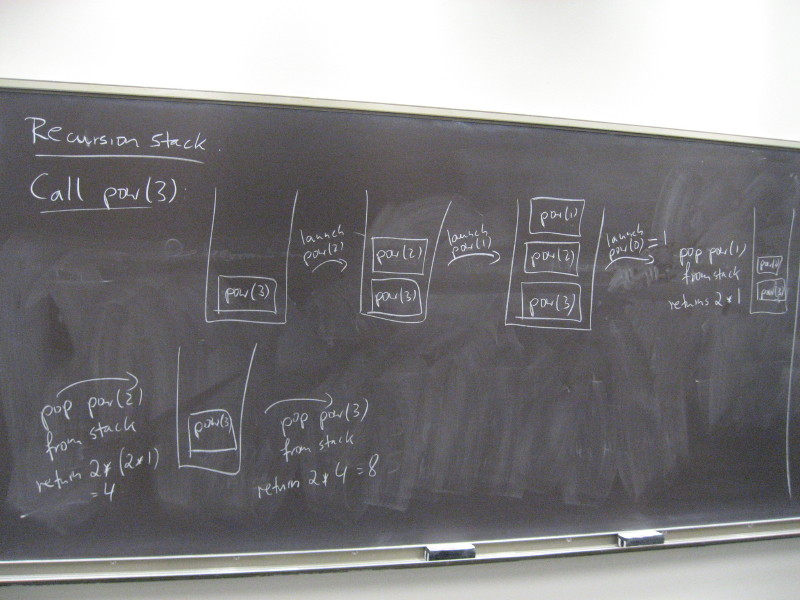 Recursion stack.
Call pow(3):
pow(3)
launch
pow(2)
pow(2)
pow(3)
launch
pow(1)
pow(1)
pow(2)
pow(3)
launch
pow(0) = 1
pop pow(1)
from stack
returns 2*1
pow(2)
pow(3)
pop pow(2)
from stack
return 2*(2*1)
=4
pow(3)
pop pow(3)
from stack
return 2*4=8